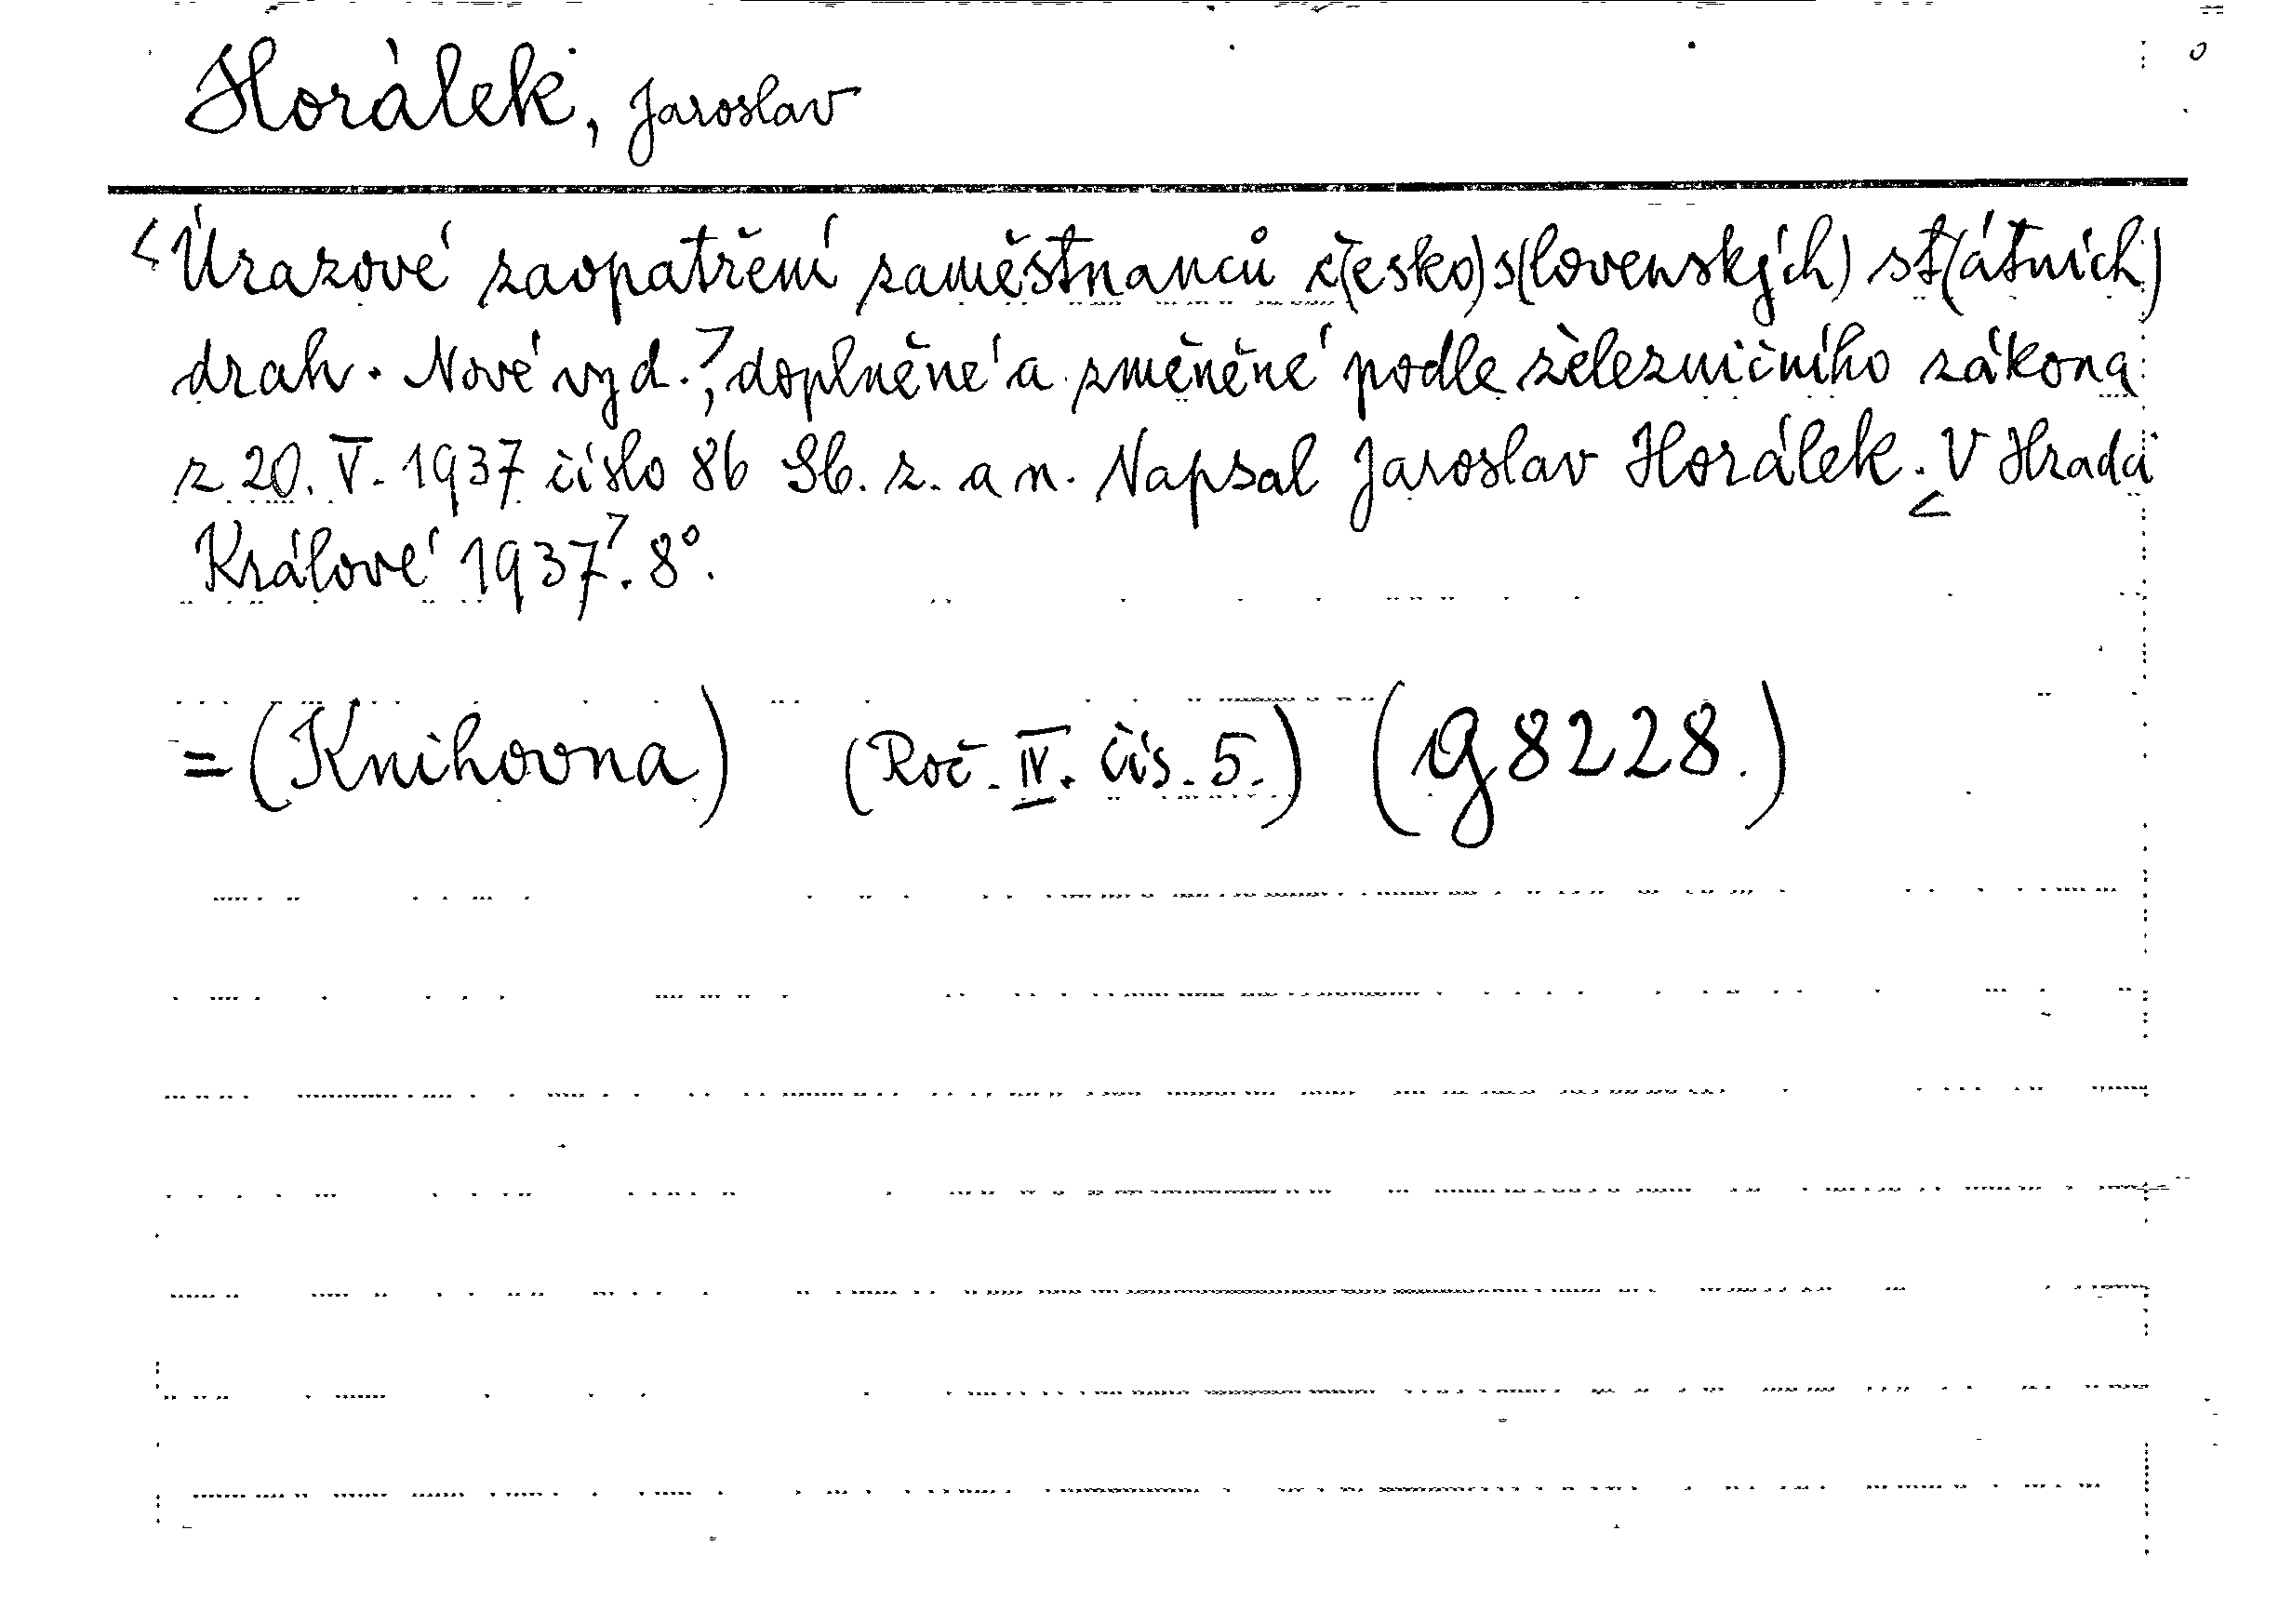 Horálek, Jaroslav
<Úrazové zaopatření zaměstnanců č(esko)s(lovenských) st(átních)
drah. Nové vyd.>, doplněné a změněné podle železničního zákona
z 20. V. 1937 číslo 86 Sb. z. a n. Napsal Jaroslav Horálek. <V Hradci
Králové 1937>. 8°.
=(Knihovna) (Roč. IV. čís. 5.) (g 8228.)